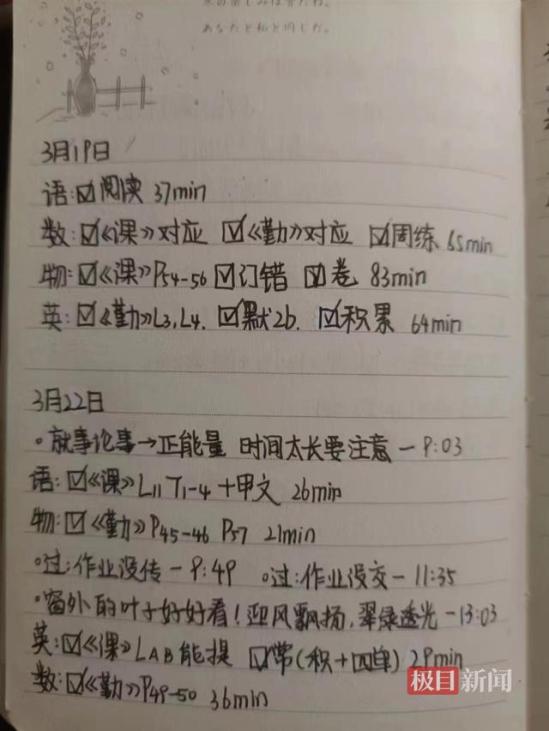 あなたと私と同じだ。
3月19日
语:☑阅读 37min
数:☑《课》对应 ☑《勤》对应 ☑周练 65min
物:☑《课》P54-56 ☑订错 ☑卷 83min
英:☑《勤》L3,L4. ☑默2b. ☑积累 64min
3月22日
。就事论事→正能量 时间太长要注意-9:03
语:☑《课》L11 T1-4+甲文 26min
物:☑《勤》P45-46 P57 21min
。过:作业没传-9:49 。过:作业没交-11:35
。窗外的叶子好好看!迎风飘扬,翠绿透光-13:03
英:☑《课》LAB能提 ☑带(积+四单)29min
数:☑《勤》P49-50 36min
极目新闻